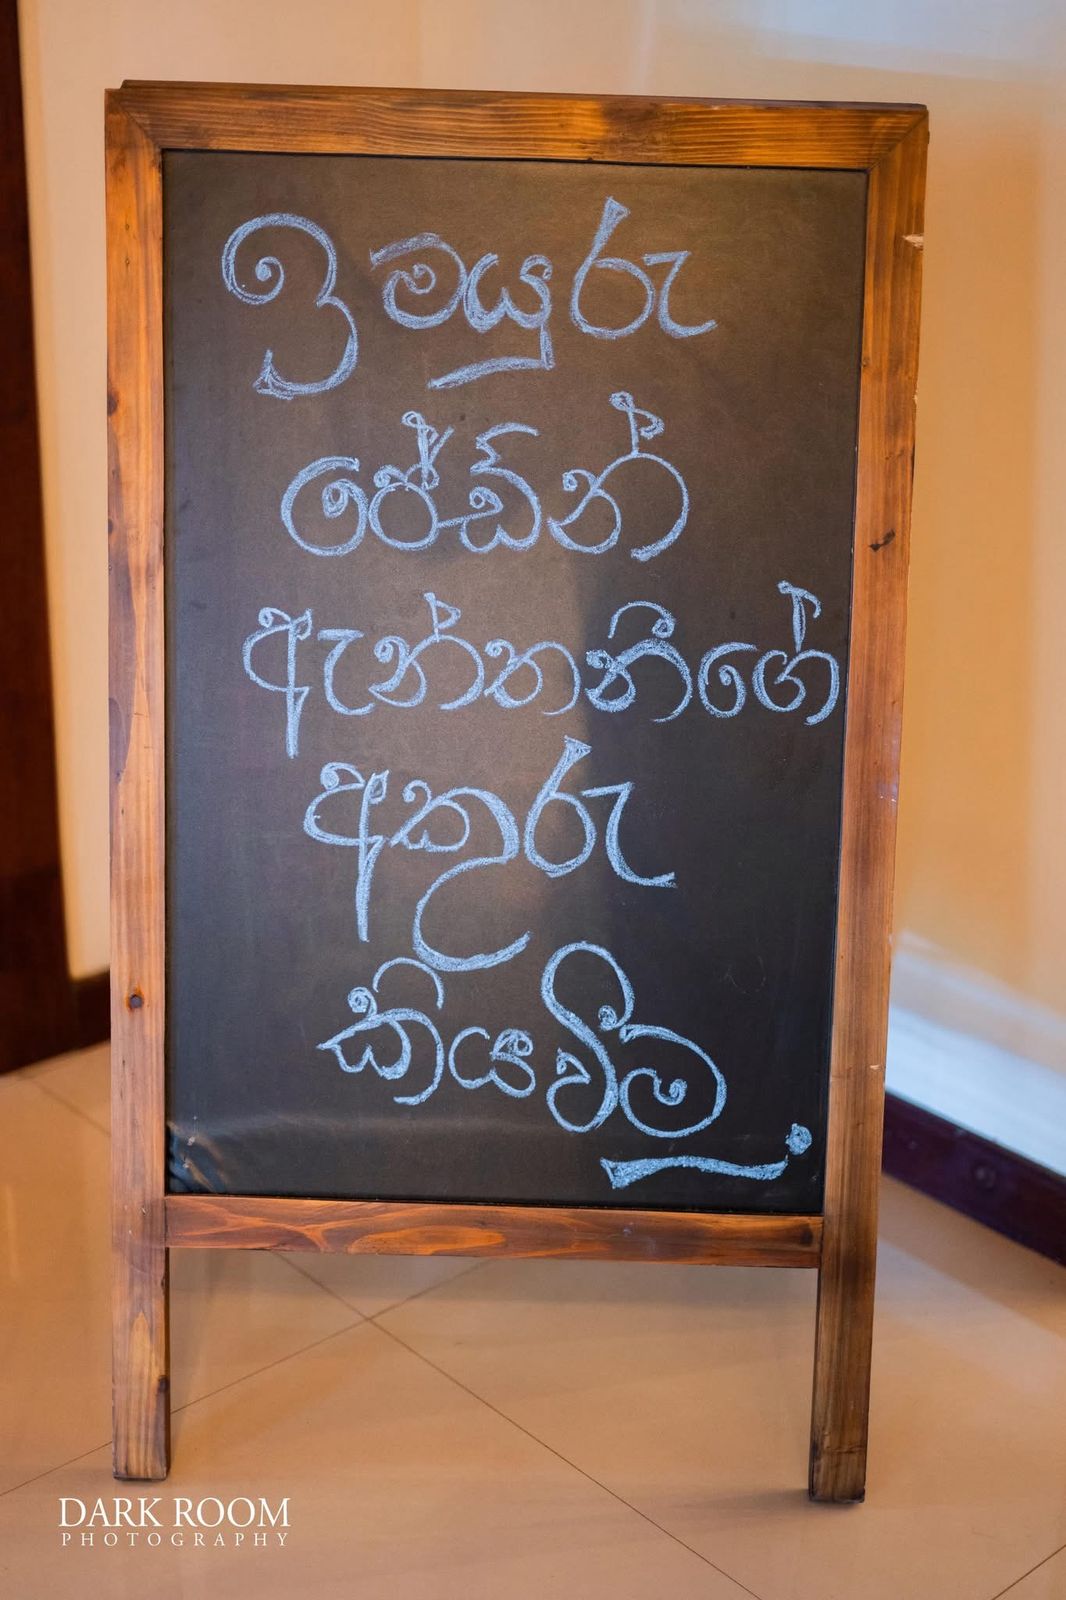 ඉමයුරු
ජේඩ්න්
ඇන්තනීගේ
අකුරු
කියවීම.
DARK ROOM
PHOTOGRAPHY